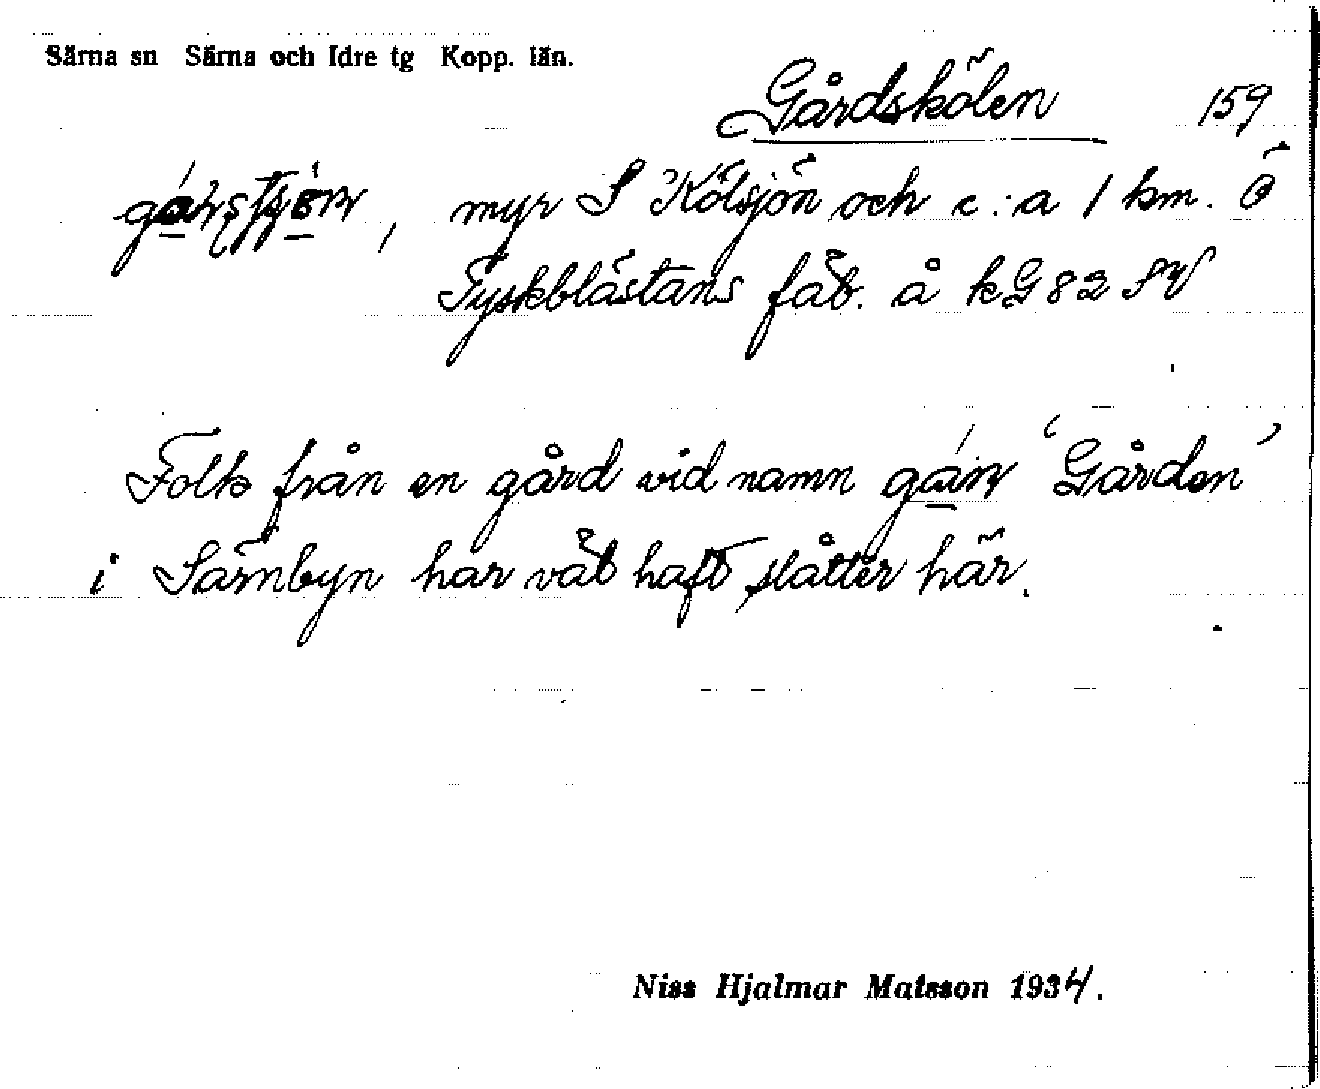 Särna sn Särna och Idre tg Kopp. län.
Gårdskölen 159
myr S Kölsjön och c:a 1 km. Ö
Tyskblåstans fäb. å kG82 SV
Folk från en gård vid namn 'Gården'
i Särnbyn har våt haft slåtter här.
Niss Hjalmar Matsson 1934.